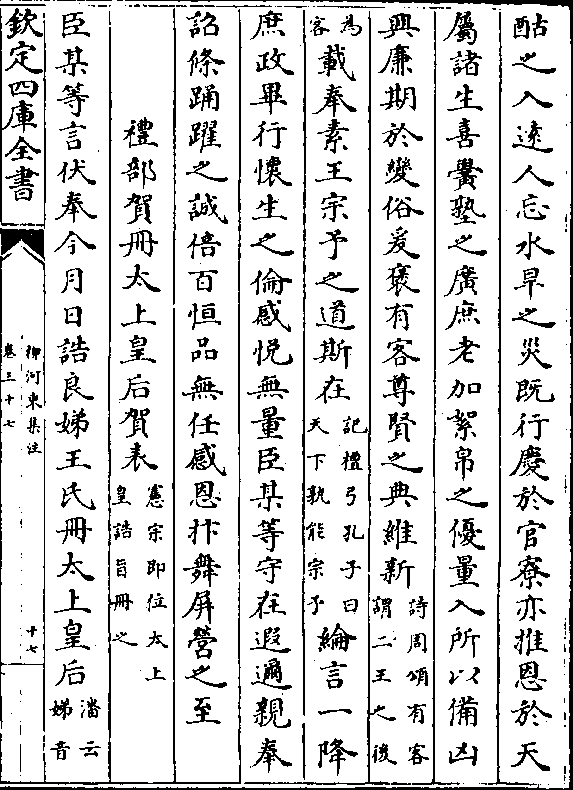 酤之入遠人忘水旱之災既行慶於官寮亦推恩於天
屬諸生喜黌塾之廣庶老加絮帛之優量入所以備凶
興廉期於變俗爰褒有客尊賢之典維新詩周頌有客謂二王之後
為客載奉素王宗予之道斯在記檀弓孔子曰天下孰能宗予綸言一降
庶政畢行懷生之倫感悅無量臣某等守在遐邇親奉
詔條踊躍之誠倍百恒品無任感恩抃舞屏營之至
禮部賀冊太上皇后賀表憲宗即位太上皇誥旨冊之
臣某等言伏奉今月日誥良娣王氏冊太上皇后潘云娣音
欽定四庫全書
柳河東集注
卷三十七
十七